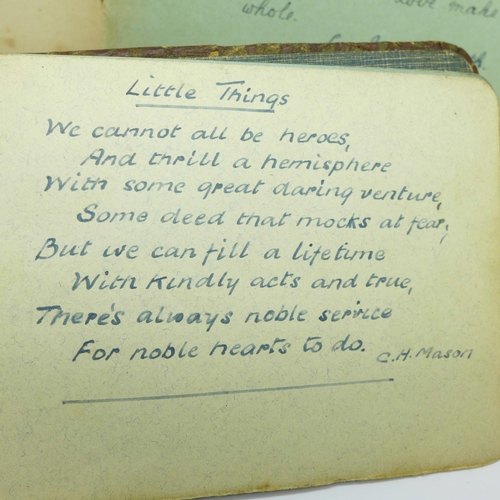 whole.
Love make
Little Things
We cannot all be heroes,
And thrill a hemisphere
With some great daring venture,
Some deed that mocks at fear;
But we can fill a lifetime
With kindly acts and true,
There's always noble service
For noble hearts to do.
C.H. Mason